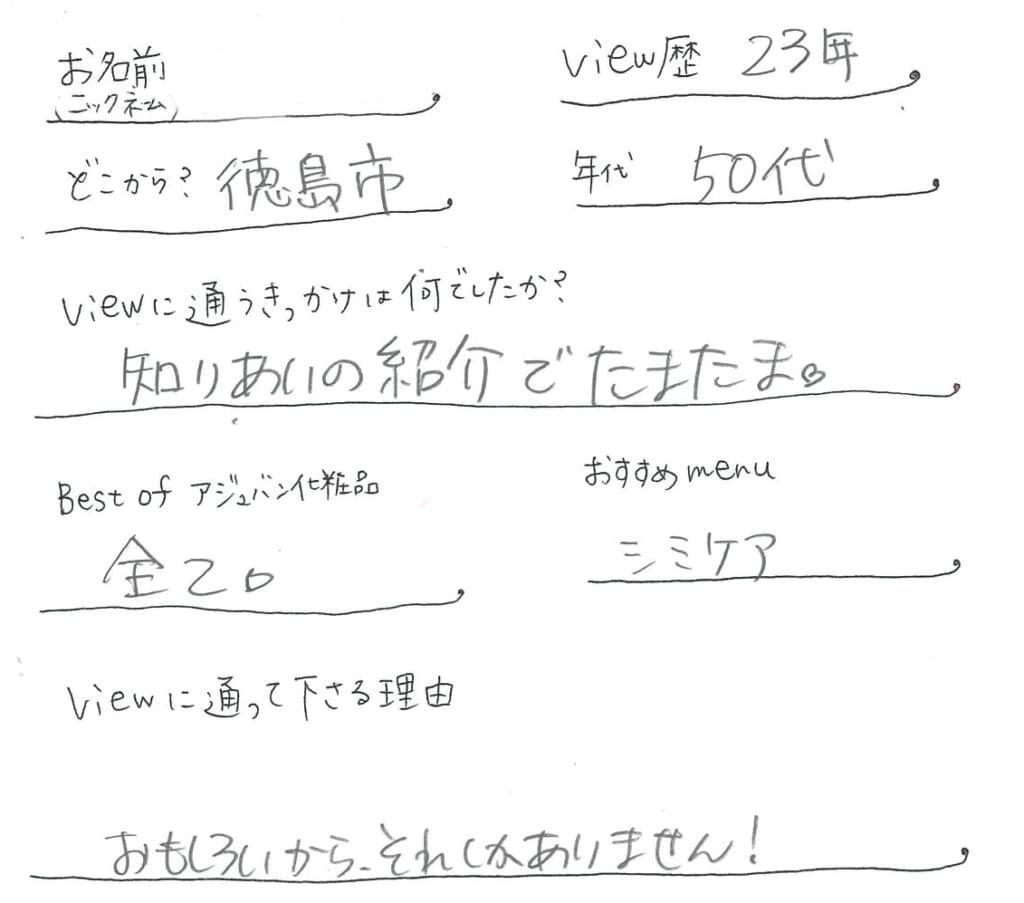 お名前 view歴 23年
(ニックネーム)
どこから? 徳島市 年代 50代
viewに通うきっかけは何でしたか?
知りあいの紹介でたまたま。
Best of アジュバン化粧品 おすすめmenu
全て。 シミケア
viewに通って下さる理由
おもしろいから、それしかありません!